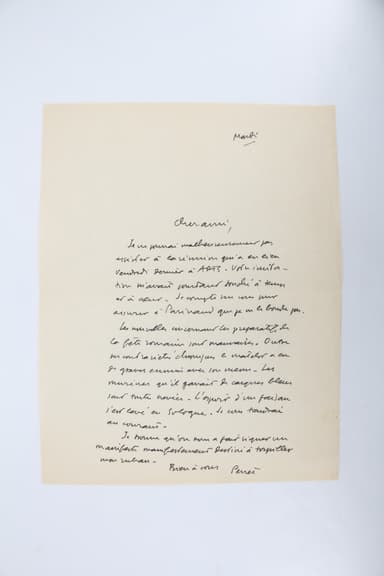 Mardi
Cher ami,
Je ne pourrai malheureusement pas
assister à la réunion qui a eu lieu
vendredi dernier à ARTS. Votre invita-
tion m'avait pourtant touché à temps
et à cœur. Je compte sur vous pour
assurer à Parinaud que je ne le boude pas.
Les nouvelles concernant les préparatifs de
la fête romaine sont mauvaises. Outre
de graves ennuis avec son
murènes qu'il gavait de
sont toutes noyées. L'espoir d'un faisan
s'est levé en Sologne. Je vous tiendrai
au courant.
Je trouve qu'on nous a fait signer un
manifeste manifestement destiné à torpiller
mon ruban.
Bien à vous Perret